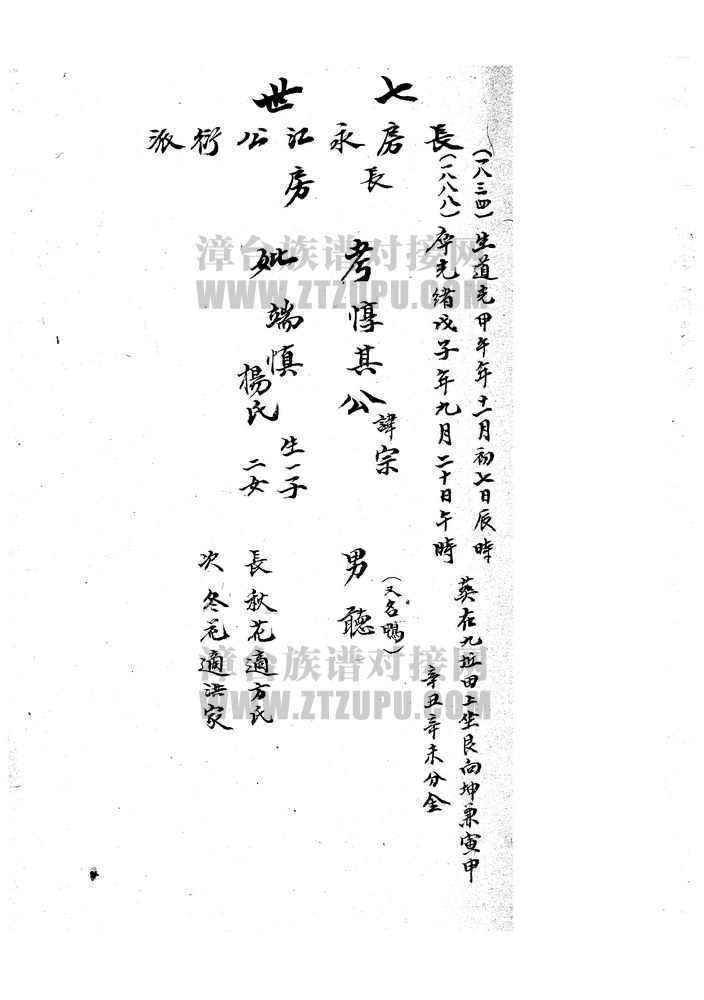 七世
長房永江公衍派
長房
(一八三四)生道光甲午年十一月初七日辰時
(一八八八)卒光緒戊子年九月二十日午時
葬在九坵田上坐艮向坤兼寅申
辛丑辛未分金
考惇其公
諱宗
男聽
(又名鴨)
妣端慎
楊氏
生一子
二女
長秋花適方氏
次冬花適洪家
漳台族谱对接网
WWW.ZTZUPU.COM
漳台族谱对接网
WWW.ZTZUPU.COM